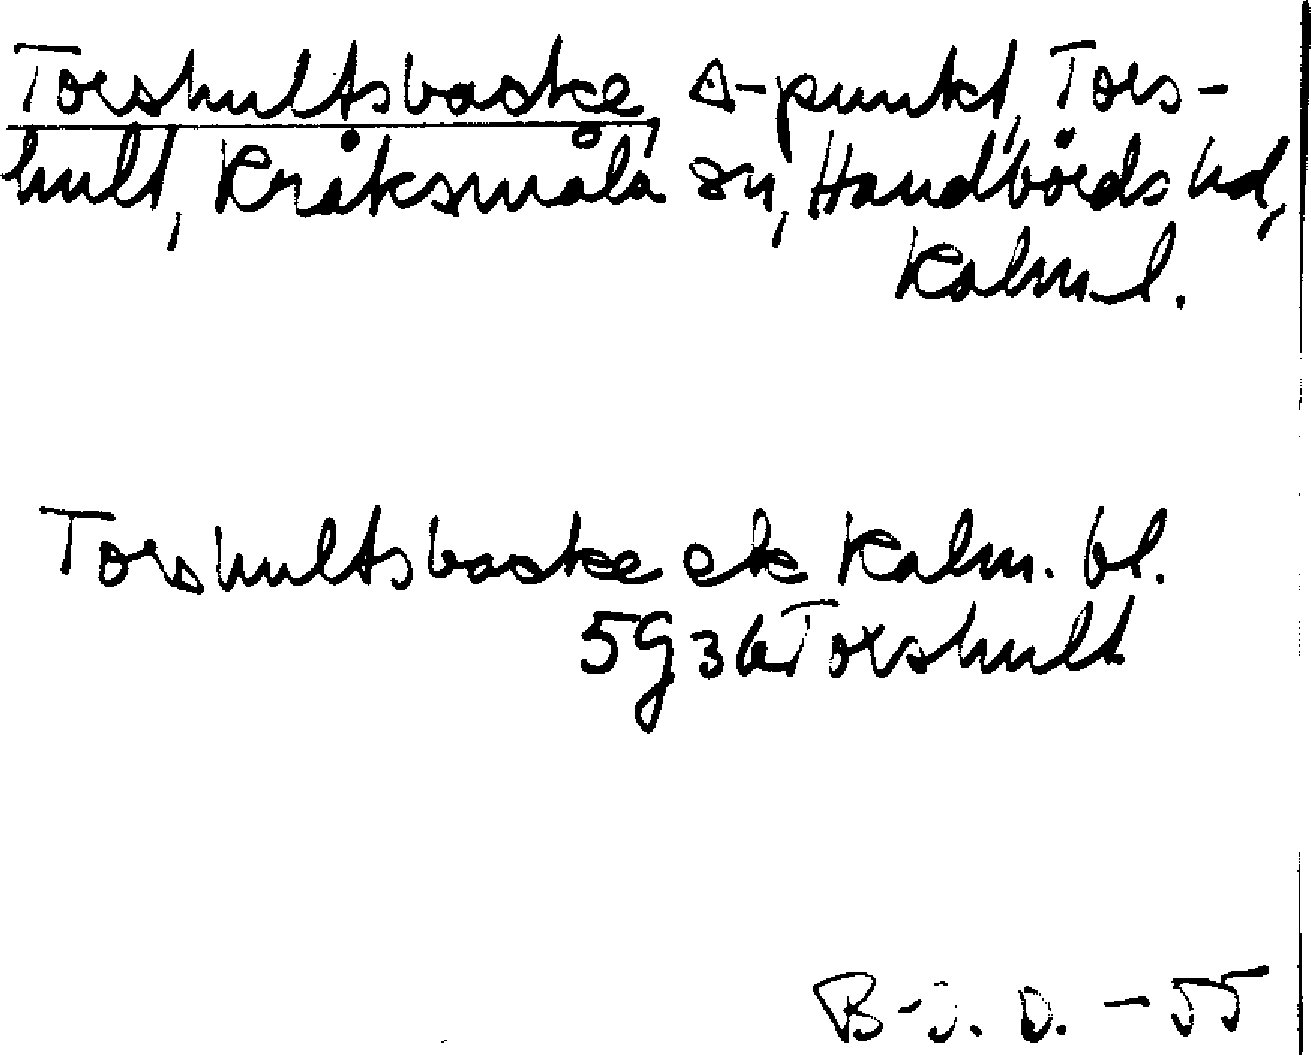 Torshultsbacke, △-punkt, Tors-
hult, Kråksmåla sn, Handbörds hd,
Kalm. l.
Torshultsbacke ek Kalm. bl.
5G3b Torshult
B-J. D. -55